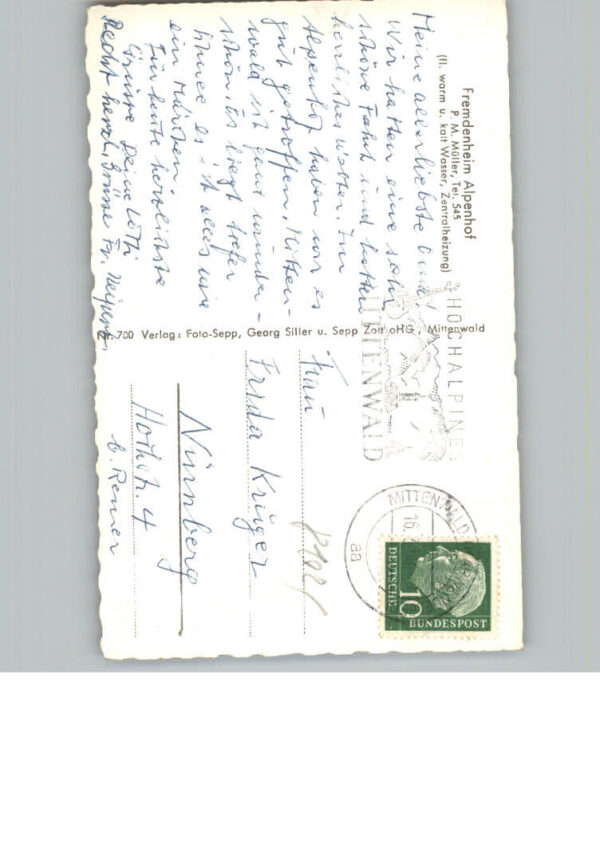 Fremdenheim Alpenhof
P. M. Müller, Tel. 545
(fl. warm u. kalt Wasser, Zentralheizung)
Meine allerliebste
Wir hatten eine sehr
schöne Fahrt und hatten
herrliches Wetter. Im
Alpenhof haben wir es
gut getroffen, Mitten-
wald ist ganz wunder-
schön. Es liegt tiefer
Schnee es ist alles wie
ein Märchen.
Für heute herzlichste
Grüsse Deine Lotti
Recht herzl. Grüsse Fr.
700 Verlag: Foto-Sepp, Georg Siller u. Sepp Zott oHG, Mittenwald
HOCHALPINES
MITTENWALD
MITTENWALD
16.
aa
10
DEUTSCHE
BUNDESPOST
Frau
Frida Krüger
Nürnberg
Hochstr. 4
b. Renner